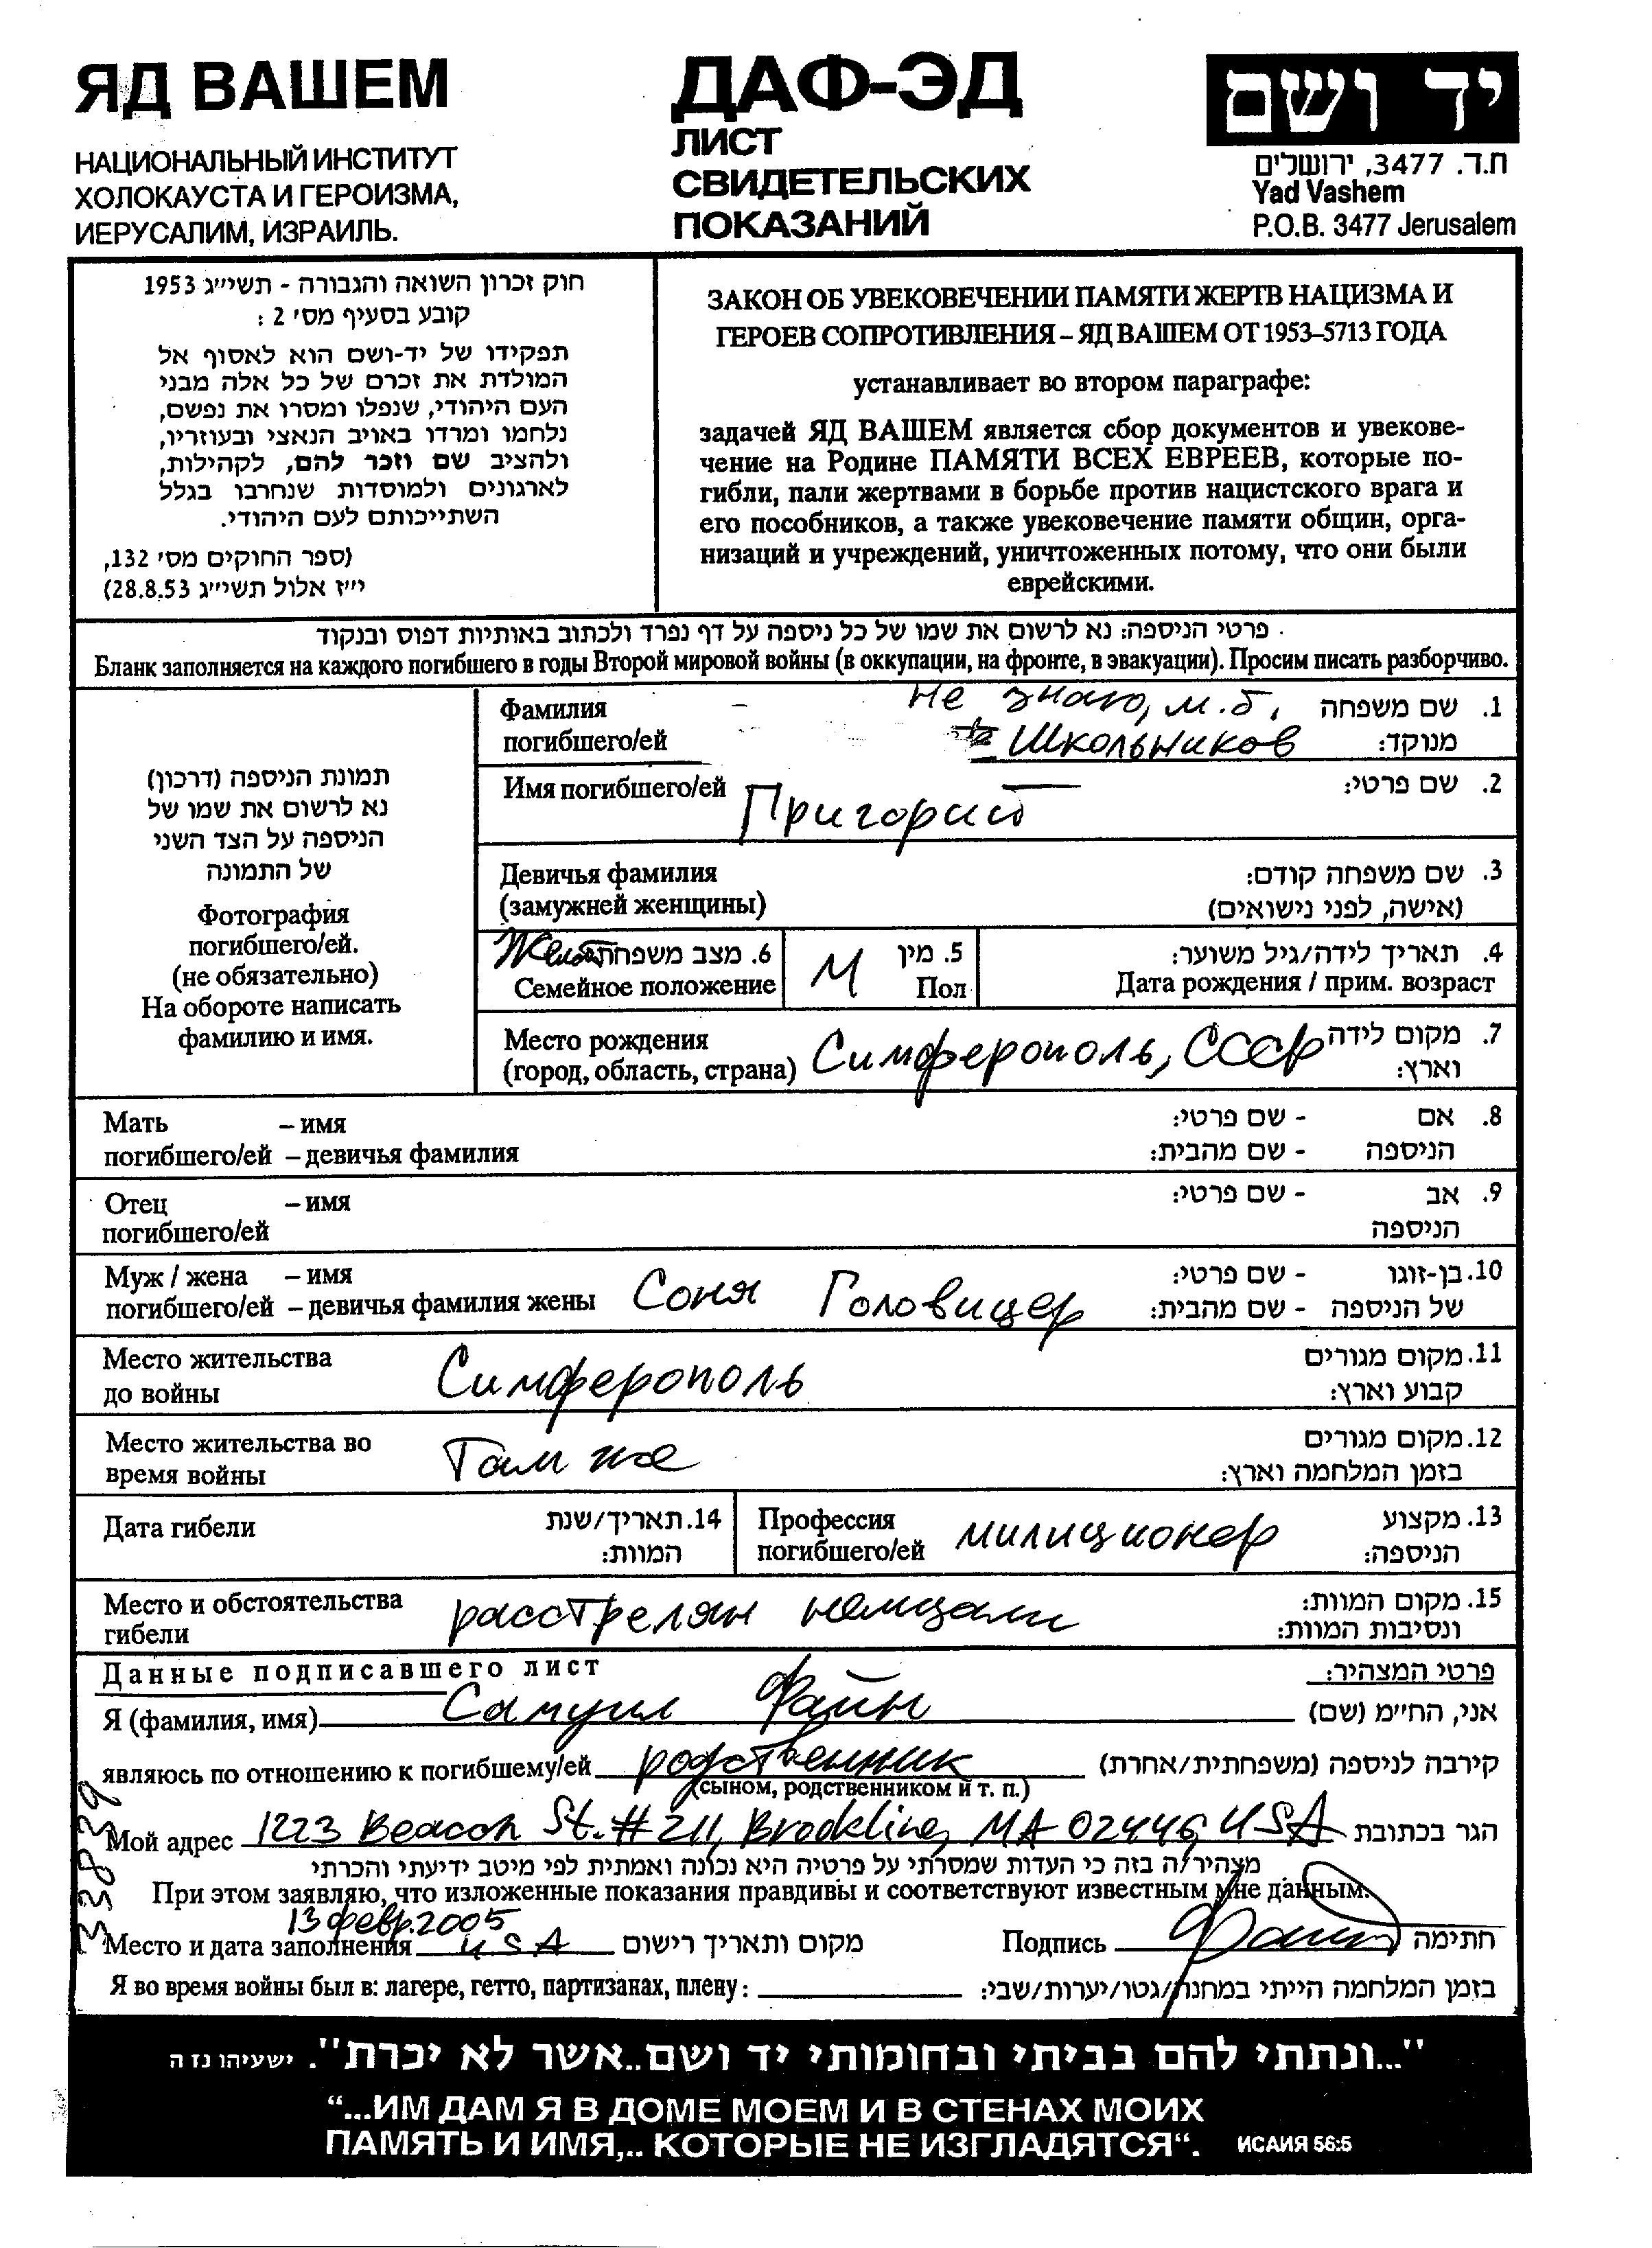 ЯД ВАШЕМ
НАЦИОНАЛЬНЫЙ ИНСТИТУТ
ХОЛОКАУСТА И ГЕРОИЗМА,
ИЕРУСАЛИМ, ИЗРАИЛЬ.
ДАФ-ЭД
ЛИСТ
СВИДЕТЕЛЬСКИХ
ПОКАЗАНИЙ
יד ושם
ת.ד. 3477, ירושלים
Yad Vashem
P.O.B. 3477 Jerusalem
חוק זכרון השואה והגבורה - תשי״ג 1953
קובע בסעיף מס׳ 2 :
תפקידו של יד-ושם הוא לאסוף אל
המולדת את זכרם של כל אלה מבני
העם היהודי, שנפלו ומסרו את נפשם,
נלחמו ומרדו באויב הנאצי ובעוזריו,
ולהציב שם וזכר להם, לקהילות,
לארגונים ולמוסדות שנחרבו בגלל
השתייכותם לעם היהודי.
(ספר החוקים מס׳ 132,
י״ז אלול תשי״ג 28.8.53)
ЗАКОН ОБ УВЕКОВЕЧЕНИИ ПАМЯТИ ЖЕРТВ НАЦИЗМА И
ГЕРОЕВ СОПРОТИВЛЕНИЯ – ЯД ВАШЕМ ОТ 1953–5713 ГОДА
устанавливает во втором параграфе:
задачей ЯД ВАШЕМ является сбор документов и увекове-
чение на Родине ПАМЯТИ ВСЕХ ЕВРЕЕВ, которые по-
гибли, пали жертвами в борьбе против нацистского врага и
его пособников, а также увековечение памяти общин, орга-
низаций и учреждений, уничтоженных потому, что они были
еврейскими.
פרטי הניספה: נא לרשום את שמו של כל ניספה על דף נפרד ולכתוב באותיות דפוס ובנקוד
Бланк заполняется на каждого погибшего в годы Второй мировой войны (в оккупации, на фронте, в эвакуации). Просим писать разборчиво.
תמונת הניספה (דרכון)
נא לרשום את שמו של
הניספה על הצד השני
של התמונה
Фотография
погибшего/ей.
(не обязательно)
На обороте написать
фамилию и имя.
Фамилия не знаю, м.б. 1. שם משפחה
погибшего/ей Школьников מנוקד:
Имя погибшего/ей Григорий 2. שם פרטי:
Девичья фамилия 3. שם משפחה קודם:
(замужней женщины) (אישה, לפני נישואים)
6. מצב משפחתי 5. מין 4. תאריך לידה/גיל משוער:
Семейное положение М Пол Дата рождения / прим. возраст
Место рождения 7. מקום לידה
(город, область, страна) Симферополь, СССР וארץ:
Мать – имя - שם פרטי: 8. אם
погибшего/ей – девичья фамилия - שם מהבית: הניספה
Отец – имя - שם פרטי: 9. אב
погибшего/ей הניספה
Муж / жена – имя - שם פרטי: 10. בן-זוגו
погибшего/ей – девичья фамилия жены Соня Головицер - שם מהבית: של הניספה
Место жительства 11. מקום מגורים
до войны Симферополь קבוע וארץ:
Место жительства во 12. מקום מגורים
время войны Там же בזמן המלחמה וארץ:
Дата гибели 14. תאריך/שנת המוות:
Профессия 13. מקצוע
погибшего/ей милиционер הניספה:
Место и обстоятельства 15. מקום המוות:
гибели расстрелян немцами ונסיבות המוות:
Данные подписавшего лист פרטי המצהיר:
Я (фамилия, имя) Самуил Файн אני, החי״מ (שם)
являюсь по отношению к погибшему/ей родственник קירבה לניספה (משפחתית/אחרת)
(сыном, родственником и т. п.)
Мой адрес 1223 Beacon St. # 211, Brookline, MA 02446, USA הגר בכתובת
מצהיר/ה בזה כי העדות שמסרתי על פרטיה היא נכונה ואמתית לפי מיטב ידיעתי והכרתי
При этом заявляю, что изложенные показания правдивы и соответствуют известным мне данным.
13 февр. 2005
Место и дата заполнения USA מקום ותאריך רישום Подпись חתימה
Я во время войны был в: лагере, гетто, партизанах, плену: בזמן המלחמה הייתי במחנה/גטו/יערות/שבי:
"...ונתתי להם בביתי ובחומותי יד ושם..אשר לא יכרת". ישעיהו נז ה
“...ИМ ДАМ Я В ДОМЕ МОЕМ И В СТЕНАХ МОИХ
ПАМЯТЬ И ИМЯ,.. КОТОРЫЕ НЕ ИЗГЛАДЯТСЯ“. ИСАИЯ 56:5